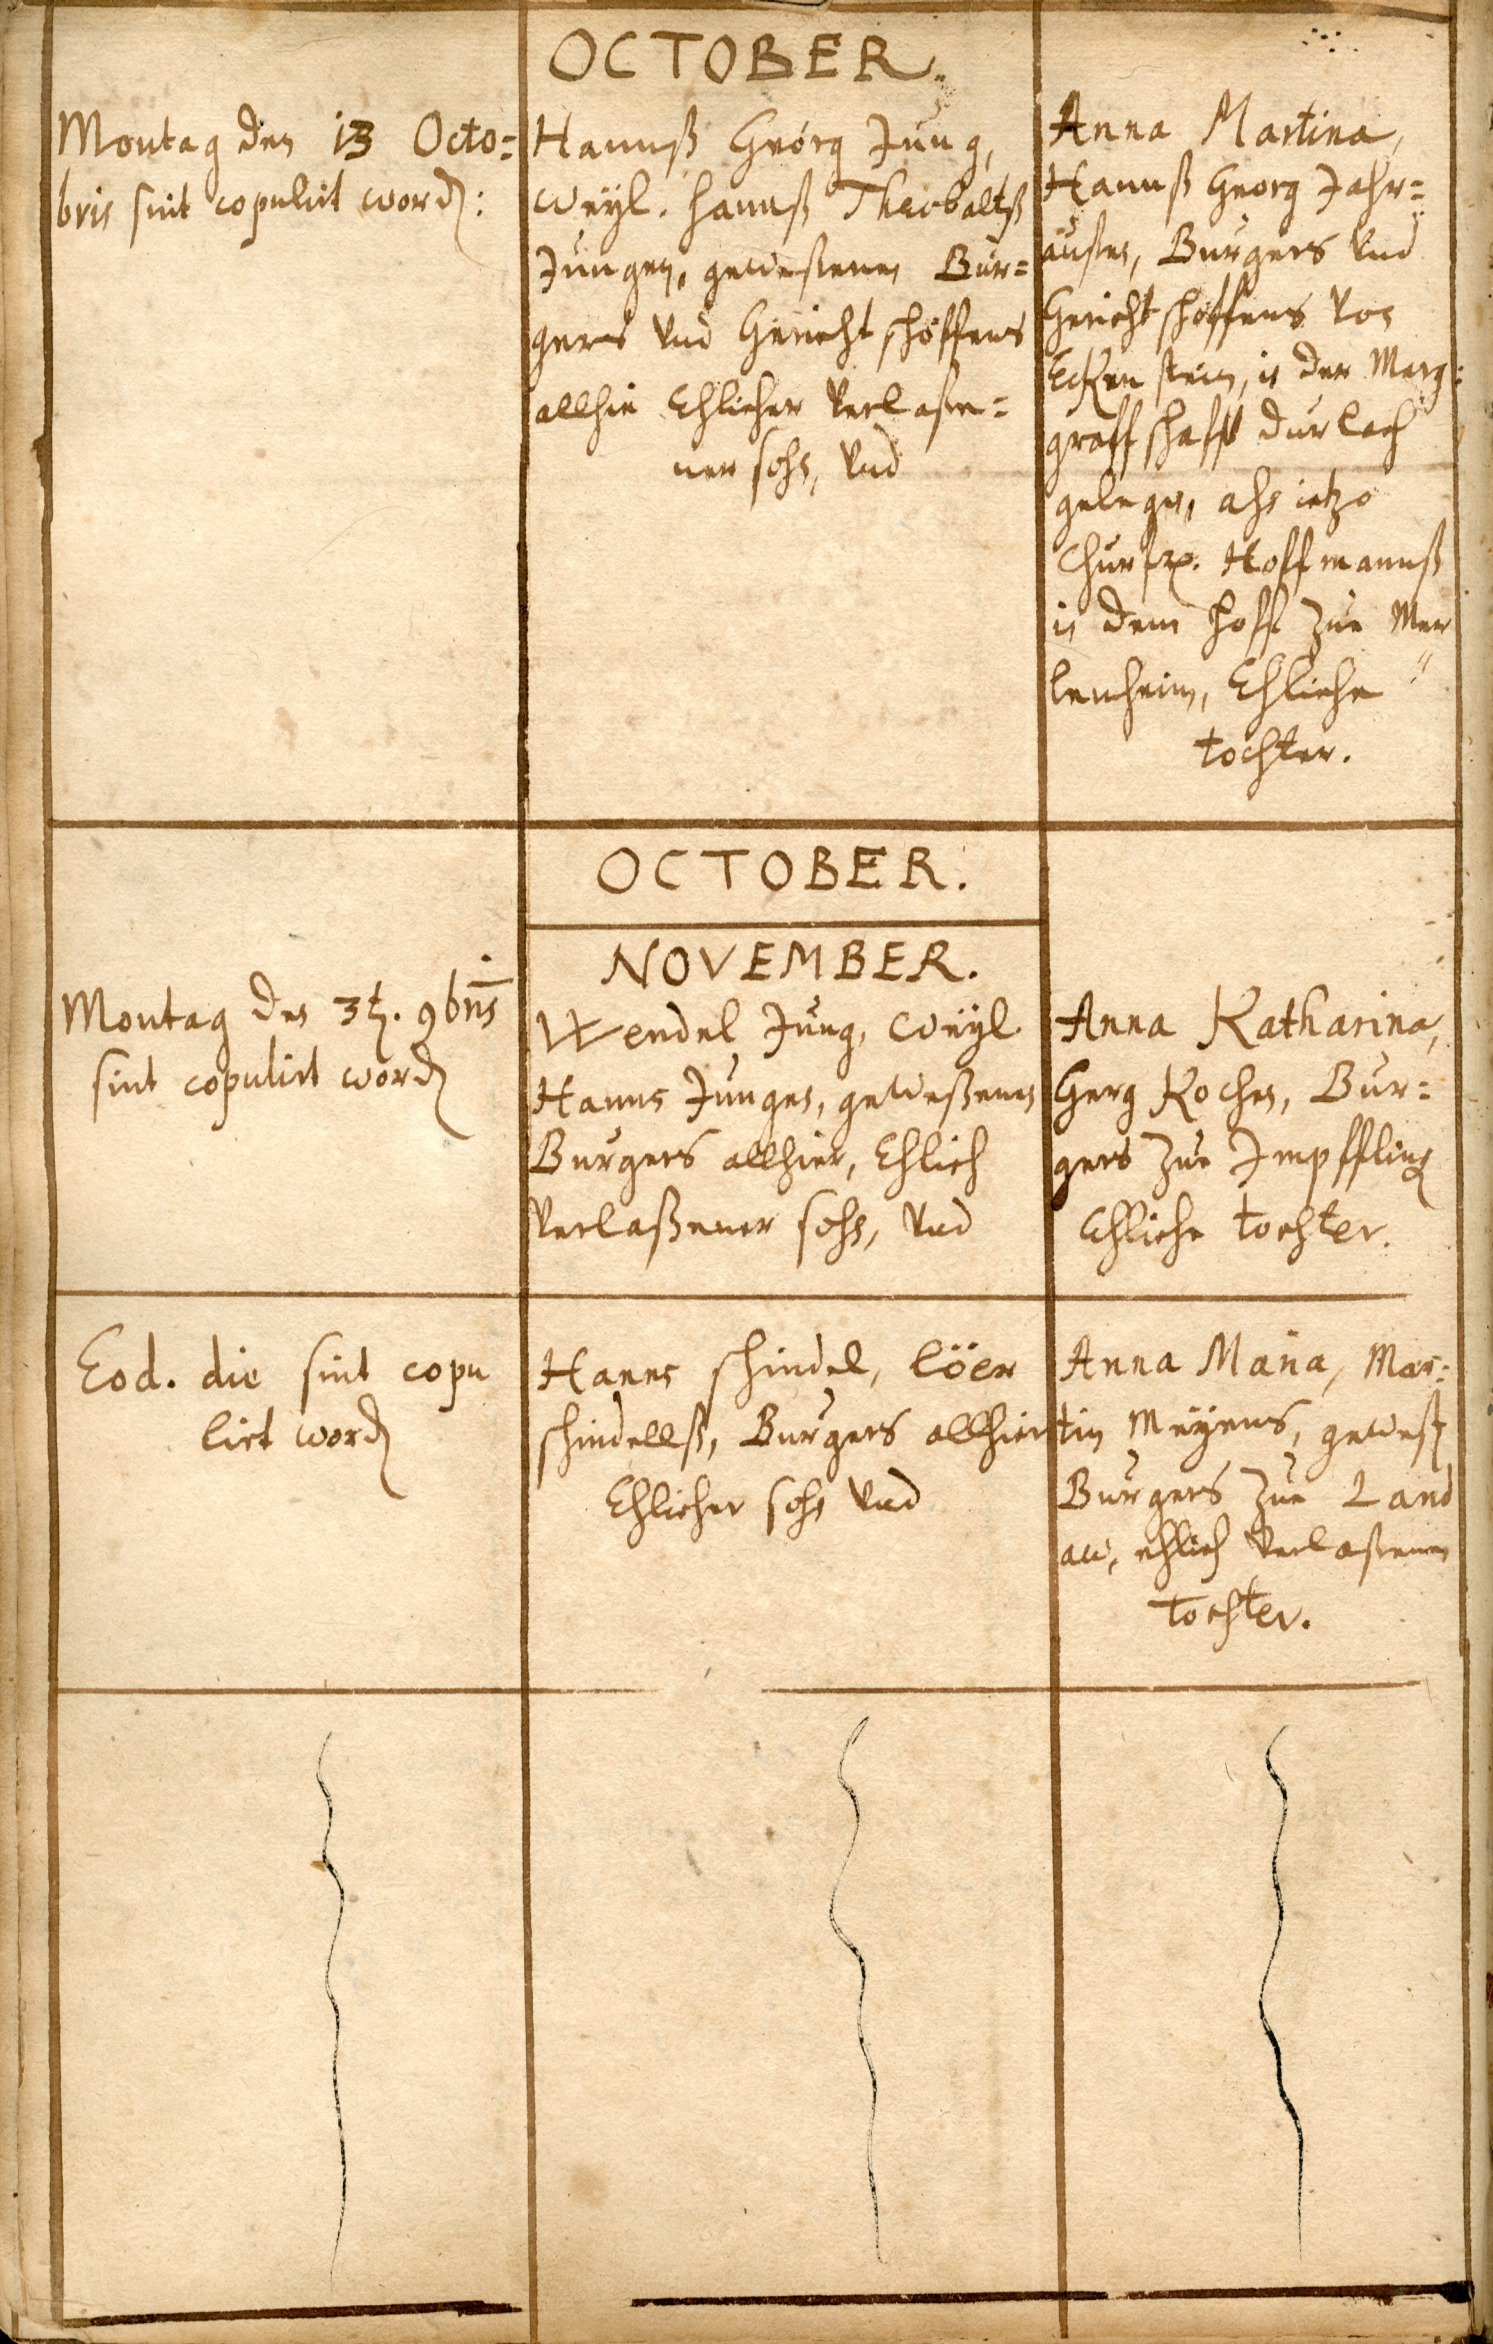 OCTOBER.
Montag den 13 Octo=
bris sint copulirt word:
Hannß Georg Jung,
weyl. Hannß Theobaltß
Jungen, geweßenen Bur=
gers und Gericht schöffens
allhie Ehlicher verlaßen=
ner sohn, und
Anna Martina,
Hannß Georg Jahr=
außen, Burgers und
Gericht schöffens von
Ecken stein, in der Marg=
graff schafft Durlach
gelegen, als ietzo
Churfr. Hoffmannß
in dem Hoff zue Mer
lenheim, Ehliche
tochter.
OCTOBER.
NOVEMBER.
Montag den 3t. 9bris
sint copulirt word
Wendel Jung, weyl
Hanns Jungen, geweßenen
Burgers allhier, Ehlich
verlaßener sohn, und
Anna Katharina,
Gerg Kochen, Bur=
gers zue Impffling
Ehliche tochter.
Eod. die sint copu
lirt word
Hanns schindel, löer
schindellß, Burgers allhier
Ehlicher sohn und
Anna Maria, Mar=
tin Meyens, geweß
Burgers zue Land
aw, ehlich verlaßenen
tochter.